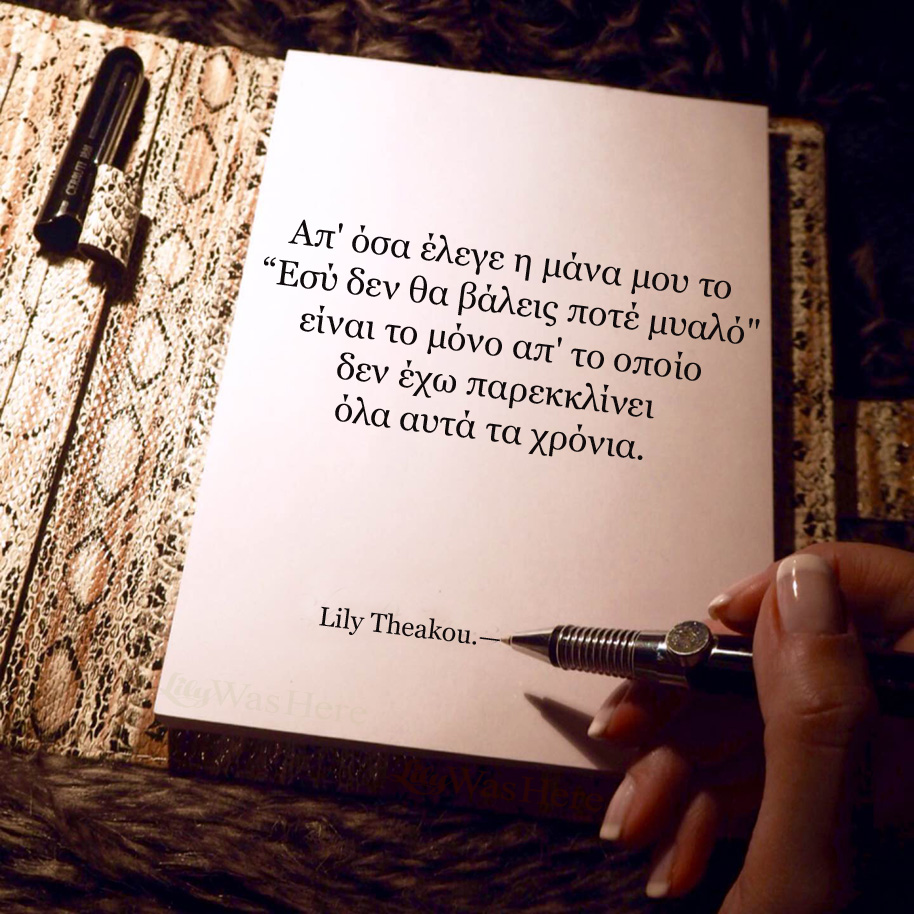 Απ' όσα έλεγε η μάνα μου το
“Εσύ δεν θα βάλεις ποτέ μυαλό"
είναι το μόνο απ' το οποίο
δεν έχω παρεκκλίνει
όλα αυτά τα χρόνια.
Lily Theakou.—
LilyWasHere
LilyWasHere
CERRUTI 1881